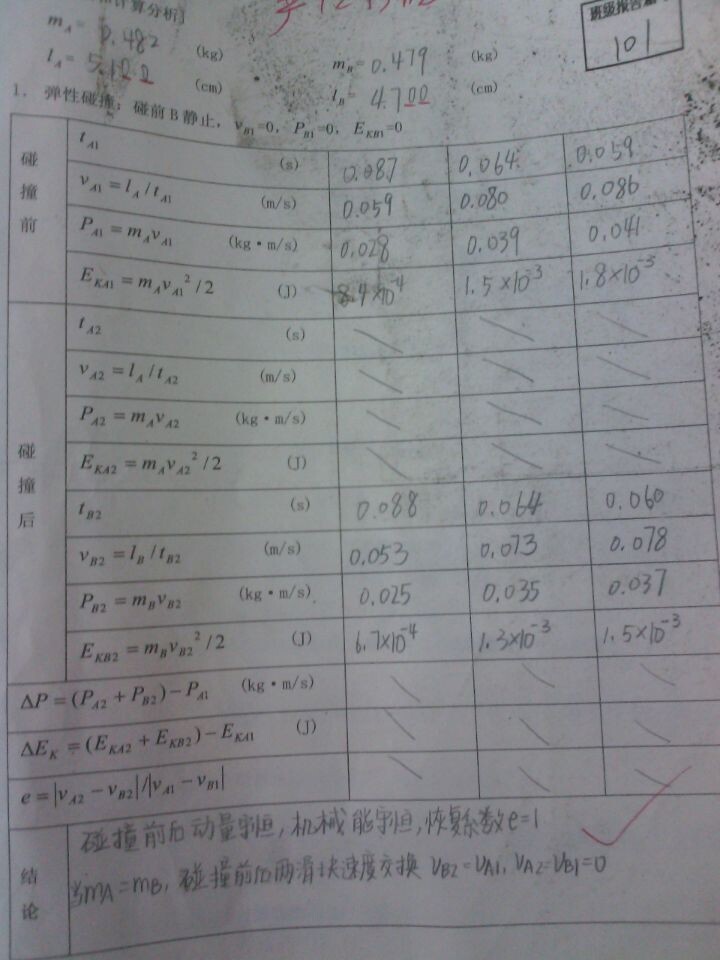 计算分析]
班级报告
101
m_A= 0.482 (kg)
m_B= 0.479 (kg)
l_A= 5.100 (cm)
l_B= 4.700 (cm)
1. 弹性碰撞: 碰前B静止, v_B1=0, P_B1=0, E_KB1=0
碰撞前
t_A1 (s) 0.087 0.064 0.059
v_A1=l_A/t_A1 (m/s) 0.059 0.080 0.086
P_A1=m_A v_A1 (kg·m/s) 0.028 0.039 0.041
E_KA1=m_A v_A1²/2 (J) 8.4×10⁻⁴ 1.5×10⁻³ 1.8×10⁻³
碰撞后
t_A2 (s) \ \ \
v_A2=l_A/t_A2 (m/s) \ \ \
P_A2=m_A v_A2 (kg·m/s) \ \ \
E_KA2=m_A v_A2²/2 (J) \ \ \
t_B2 (s) 0.088 0.064 0.060
v_B2=l_B/t_B2 (m/s) 0.053 0.073 0.078
P_B2=m_B v_B2 (kg·m/s) 0.025 0.035 0.037
E_KB2=m_B v_B2²/2 (J) 6.7×10⁻⁴ 1.3×10⁻³ 1.5×10⁻³
ΔP=(P_A2+P_B2)-P_A1 (kg·m/s) \ \ \
ΔE_K=(E_KA2+E_KB2)-E_KA1 (J) \ \ \
e=|v_A2-v_B2|/|v_A1-v_B1| \ \ \
结论
碰撞前后动量守恒, 机械能守恒, 恢复系数e=1
当m_A=m_B, 碰撞前后两滑块速度交换 v_B2=v_A1, v_A2=v_B1=0